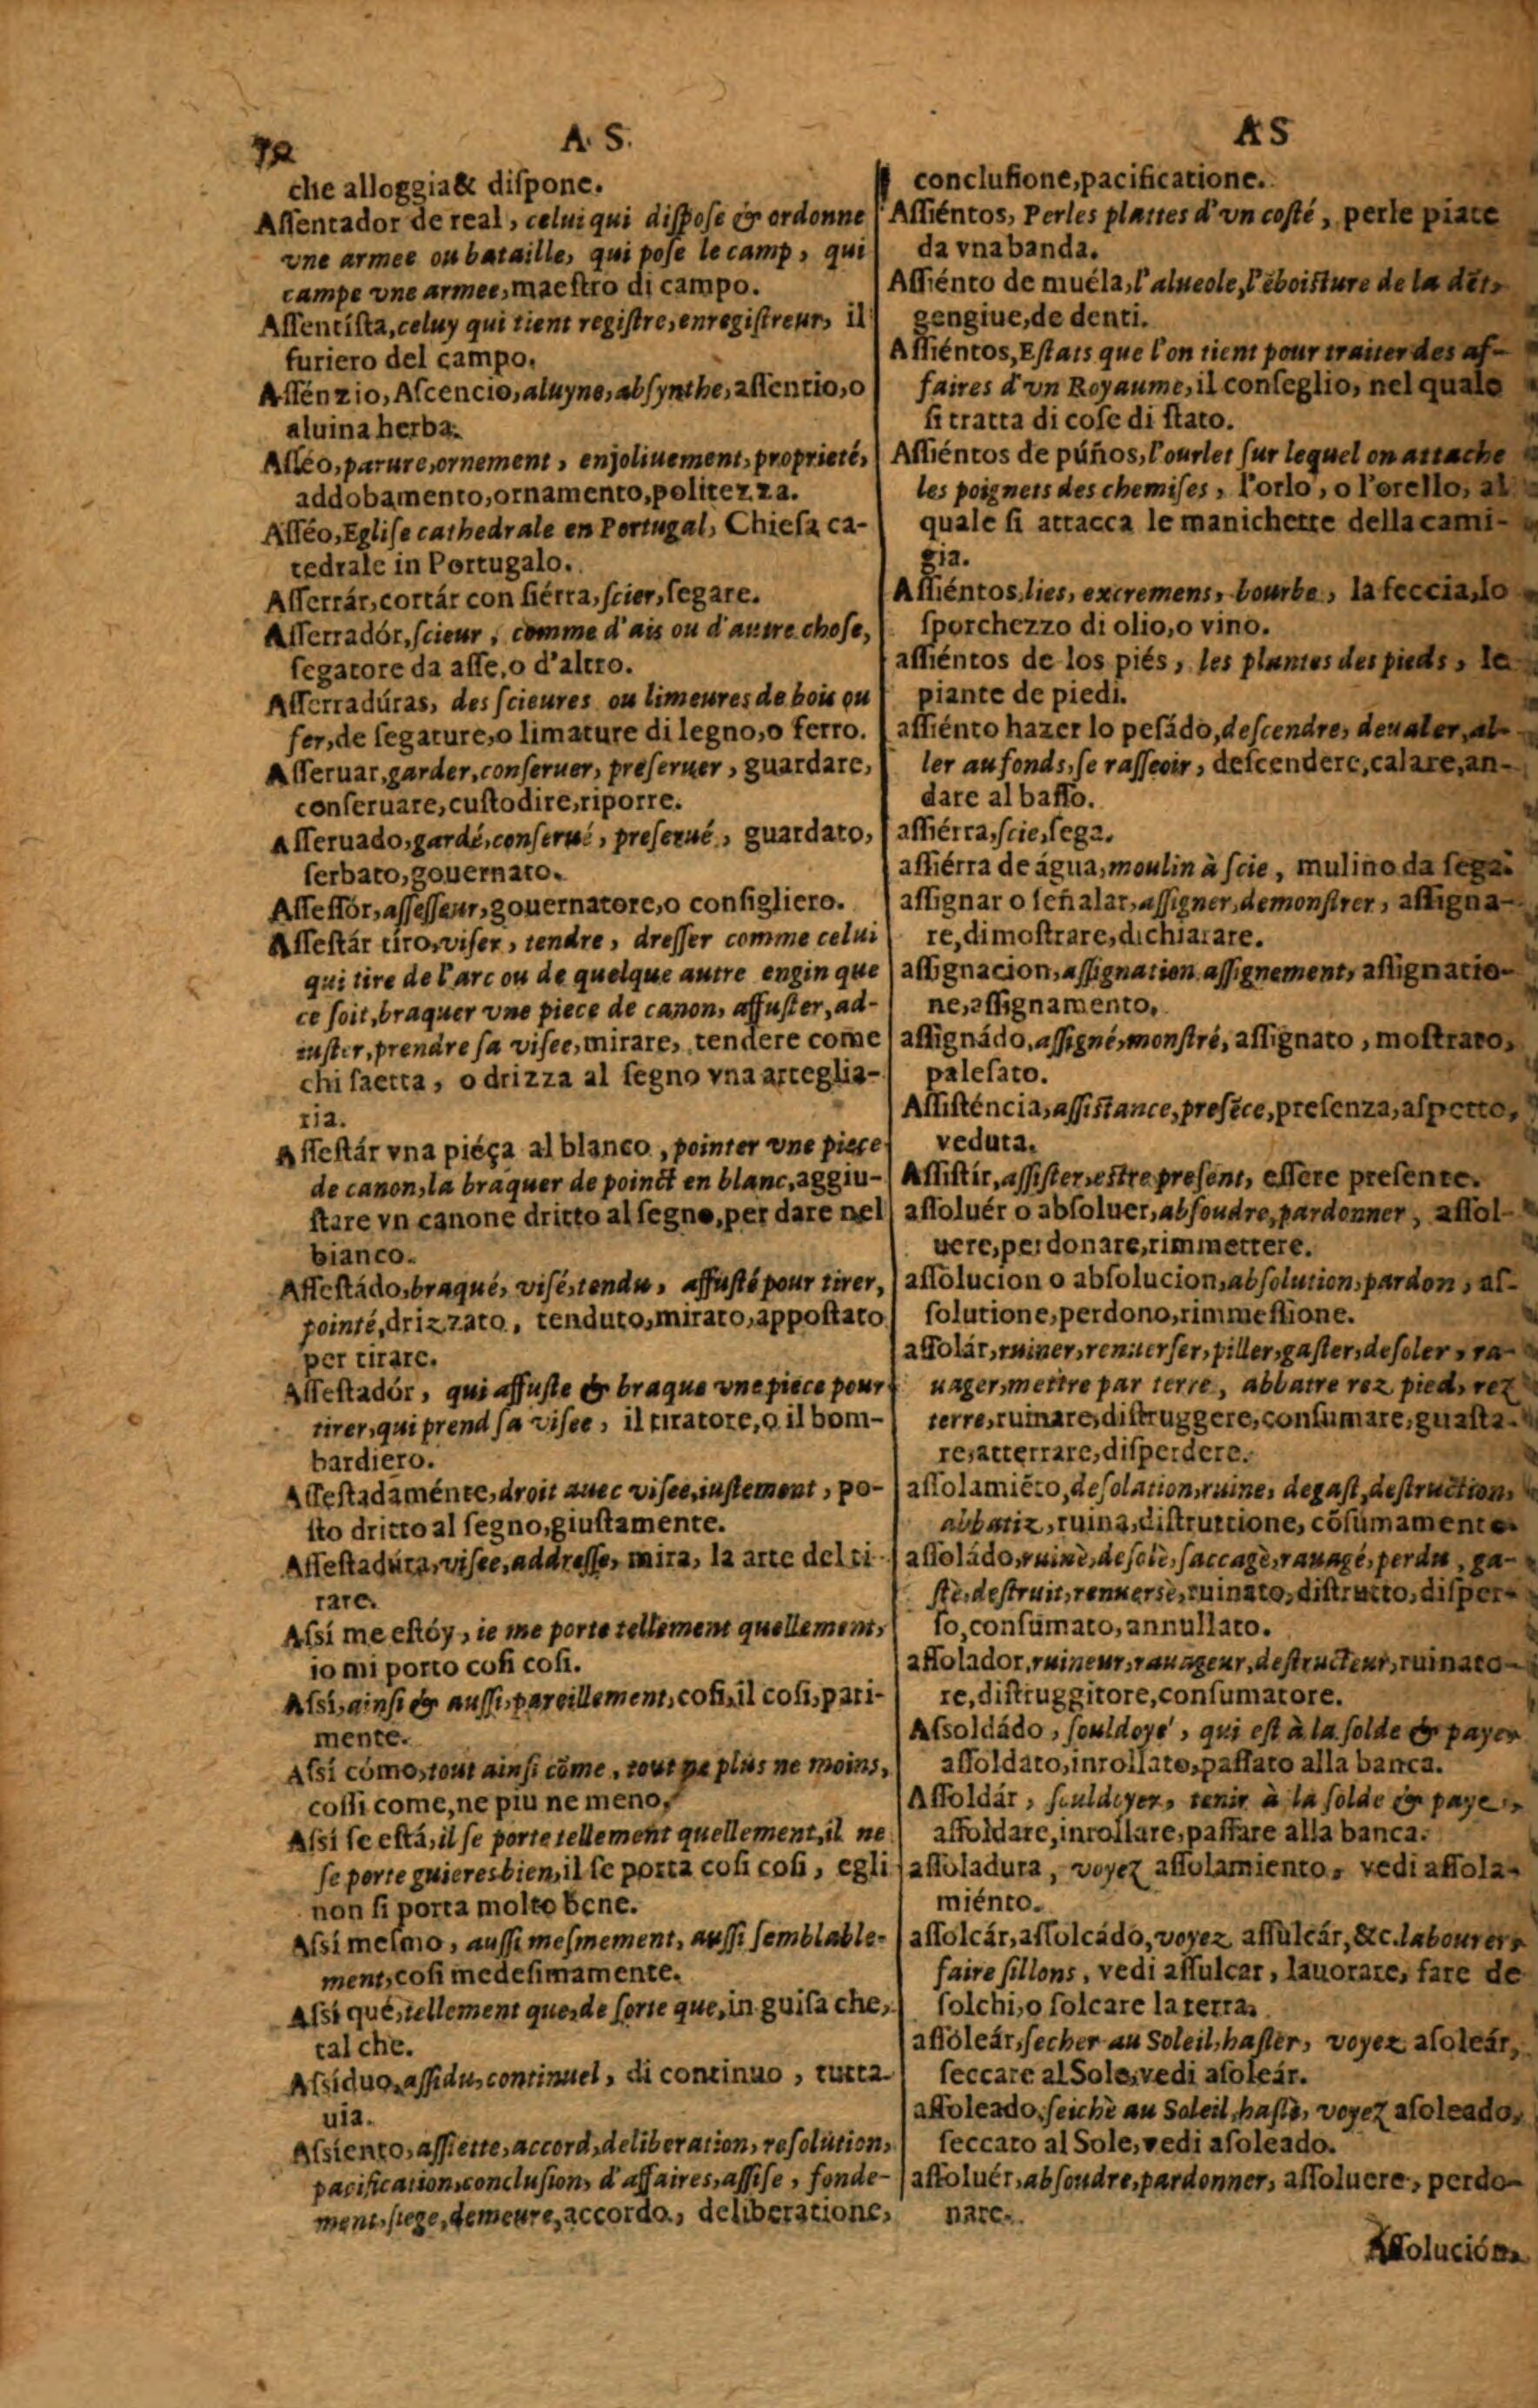 72
A. S.
che alloggia & diſpone.
Aſſentador de real, celui qui diſpoſe & ordonne
vne armee ou bataille, qui poſe le camp, qui
campe vne armee, maeſtro di campo.
Aſſentíſta, celuy qui tient regiſtre, enregiſtreur, il
furiero del campo.
Aſſénzio, Aſcencio, aluyne, abſynthe, aſſentio, o
aluina herba.
Aſſéo, parure, ornement, enjoliuement, proprieté,
addobamento, ornamento, politezza.
Aſſéo, Egliſe cathedrale en Portugal, Chieſa ca-
tedrale in Portugalo.
Aſſerrár, cortár con ſiérra, ſcier, ſegare.
Aſſerradór, ſcieur, comme d'ais ou d'autre choſe,
ſegatore da aſſe, o d'altro.
Aſſerradúras, des ſcieures ou limeures de bois ou
fer, de ſegature, o limature di legno, o ferro.
Aſſeruar, garder, conſeruer, preſeruer, guardare,
conſeruare, cuſtodire, riporre.
Aſſeruado, gardé, conſerué, preſerué, guardato,
ſerbato, gouernato.
Aſſeſſór, aſſeſſeur, gouernatore, o conſigliero.
Aſſeſtár tiro, viſer, tendre, dreſſer comme celui
qui tire de l'arc ou de quelque autre engin que
ce ſoit, braquer vne piece de canon, affuſter, ad-
iuſter, prendre ſa viſee, mirare, tendere come
chi ſaetta, o drizza al ſegno vna arteglia-
ria.
Aſſeſtár vna piéça al blanco, pointer vne piece
de canon, la braquer de poinct en blanc, aggiu-
ſtare vn canone dritto al ſegno, per dare nel
bianco.
Aſſeſtádo, braqué, viſé, tendu, affuſté pour tirer,
pointé, drizzato, tenduto, mirato, appoſtato
per tirare.
Aſſeſtadór, qui affuſte & braque vne piece pour
tirer, qui prend ſa viſee, il tiratore, o il bom-
bardiero.
Aſſeſtadaménte, droit auec viſee, iuſtement, po-
ſto dritto al ſegno, giuſtamente.
Aſſeſtadúra, viſee, addreſſe, mira, la arte del ti-
rare.
Aſsí me eſtóy, ie me porte tellement quellement,
io mi porto coſi coſi.
Aſsí, ainſi & auſſi, pareillement, coſi, il coſi, pari-
mente.
Aſsí cómo, tout ainſi cõme, tout ne plus ne moins,
coſſi come, ne piu ne meno.
Aſsí ſe eſtá, il ſe porte tellement quellement, il ne
ſe porte guieres bien, il ſe porta coſi coſi, egli
non ſi porta molto bene.
Aſsí meſmo, auſſi meſmement, auſſi ſemblable-
ment, coſi medeſimamente.
Aſsí qué, tellement que, de ſorte que, in guiſa che,
tal che.
Aſsíduo, aſſidu, continuel, di continuo, tutta-
uia.
Aſsiento, aſſiette, accord, deliberation, reſolution,
pacification, concluſion, d'affaires, aſſiſe, fonde-
ment, ſiege, demeure, accordo, deliberatione,
AS
concluſione, pacificatione.
Aſſiéntos, Perles plattes d'vn coſté, perle piate
da vna banda.
Aſſiénto de muéla, l'alueole, l'ẽboiſture de la dẽt,
gengiue, de denti.
Aſſiéntos, Eſtats que l'on tient pour traiter des af-
faires d'vn Royaume, il conſeglio, nel quale
ſi tratta di coſe di ſtato.
Aſſiéntos de púños, l'ourlet ſur lequel on attache
les poignets des chemiſes, l'orlo, o l'orello, al
quale ſi attacca le manichette della cami-
gia.
Aſſiéntos, lies, excremens, bourbe, la feccia, lo
ſporchezzo di olio, o vino.
aſſiéntos de los piés, les plantes des pieds, le
piante de piedi.
aſſiénto hazer lo peſádo, deſcendre, deualer, al-
ler au fonds, ſe raſſeoir, deſcendere, calare, an-
dare al baſſo.
aſſiérra, ſcie, ſega.
aſſiérra de água, moulin à ſcie, mulino da ſega.
aſſignar o ſeñalar, aſſigner, demonſtrer, aſſigna-
re, dimoſtrare, dichiarare.
aſſignacion, aſſignation, aſſignement, aſſignatio-
ne, aſſignamento.
aſſignádo, aſſigné, monſtré, aſſignato, moſtrato,
paleſato.
Aſſiſténcia, aſſiſtance, preſẽce, preſenza, aſpetto,
veduta.
Aſſiſtír, aſſiſter, eſtre preſent, eſſere preſente.
aſſoluér o abſoluer, abſoudre, pardonner, aſſol-
uere, perdonare, rimmettere.
aſſolucion o abſolucion, abſolution, pardon, aſ-
ſolutione, perdono, rimmeſſione.
aſſolár, ruiner, renuerſer, piller, gaſter, deſoler, ra-
uager, mettre par terre, abbatre rez pied, rez
terre, ruinare, diſtruggere, conſumare, guaſta-
re, atterrare, diſperdere.
aſſolamiẽto, deſolation, ruine, degaſt, deſtruction,
abbatiz, ruina, diſtruttione, cõſumamento.
aſſoládo, ruinè, deſolè, ſaccagè, rauagé, perdu, ga-
ſtè, deſtruit, renuersè, ruinato, diſtrutto, diſper-
ſo, conſumato, annullato.
aſſolador, ruineur, rauageur, deſtructeur, ruinato-
re, diſtruggitore, conſumatore.
Aſsoldádo, ſouldoyé, qui eſt à la ſolde & paye,
aſſoldato, inrollato, paſſato alla banca.
Aſſoldár, ſouldoyer, tenir à la ſolde & paye,
aſſoldare, inrollare, paſſare alla banca.
aſſoladura, voyez aſſolamiento, vedi aſſola-
miénto.
aſſolcár, aſſolcádo, voyez aſſulcár, &c. labourer,
faire ſillons, vedi aſſulcar, lauorare, fare de
ſolchi, o ſolcare la terra.
aſſoleár, ſecher au Soleil, haſler, voyez aſoleár,
ſeccare al Sole, vedi aſoleár.
aſſoleado, ſeichè au Soleil, haſlè, voyez aſoleado,
ſeccato al Sole, vedi aſoleado.
aſſoluér, abſoudre, pardonner, aſſoluere, perdo-
nare.
Aſſolución.